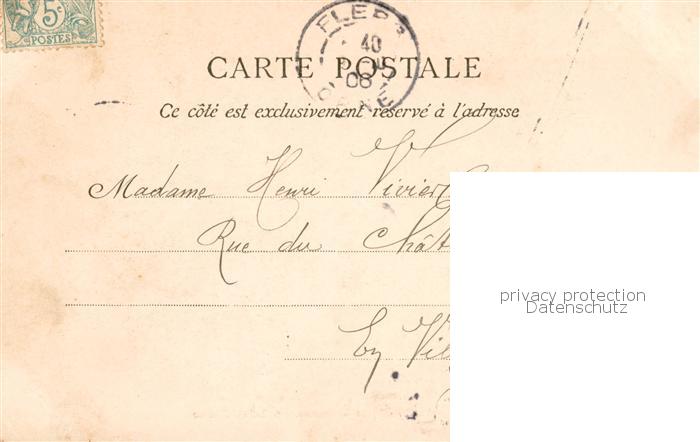 5c
POSTES
FLERS
40
06
ORNE
CARTE POSTALE
Ce côté est exclusivement réservé à l'adresse
Madame Henri Vivier
Rue du Chât
En Vil
privacy protection
Datenschutz